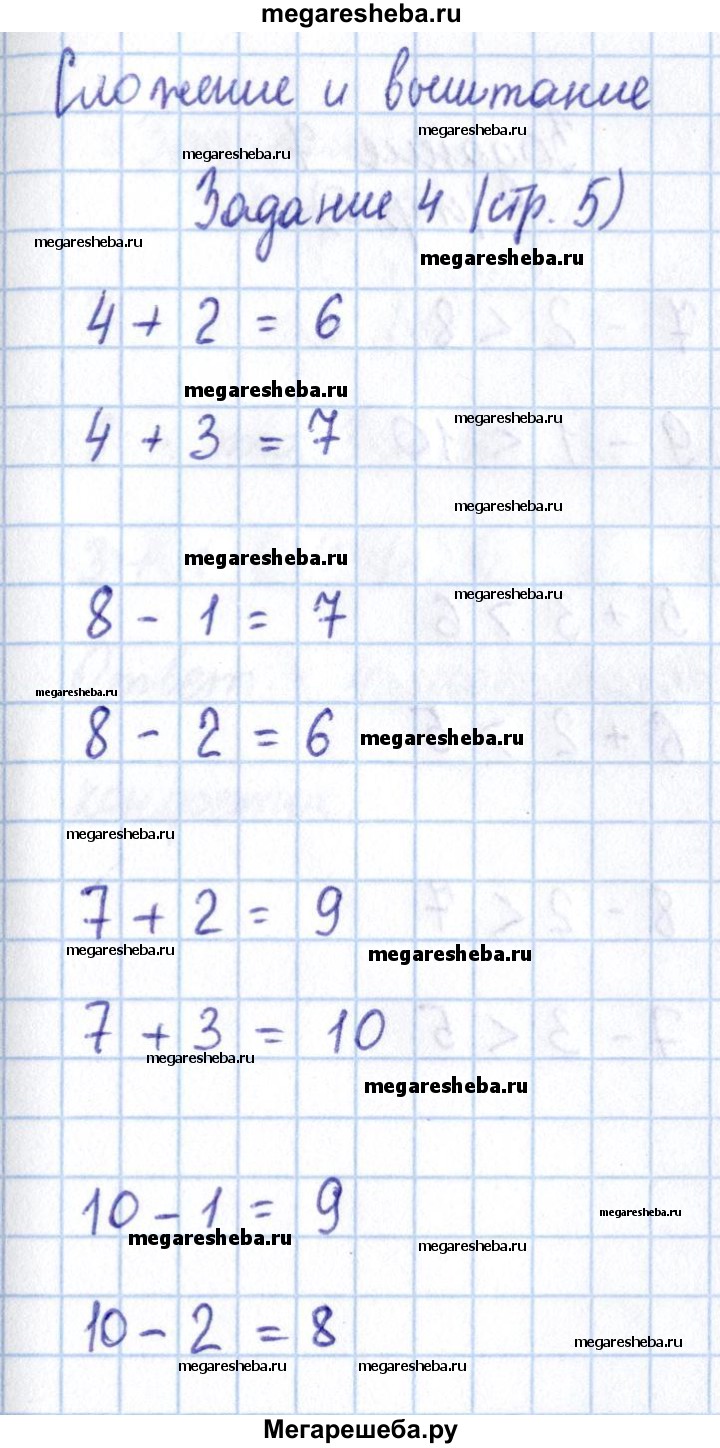 megaresheba.ru
Сложение и вычитание
megaresheba.ru
megaresheba.ru
Задание 4 (стр. 5)
megaresheba.ru
megaresheba.ru
4 + 2 = 6
megaresheba.ru
4 + 3 = 7
megaresheba.ru
megaresheba.ru
megaresheba.ru
8 - 1 = 7
megaresheba.ru
megaresheba.ru
8 - 2 = 6
megaresheba.ru
megaresheba.ru
7 + 2 = 9
megaresheba.ru
megaresheba.ru
7 + 3 = 10
megaresheba.ru
megaresheba.ru
10 - 1 = 9
megaresheba.ru
megaresheba.ru
megaresheba.ru
10 - 2 = 8
megaresheba.ru
megaresheba.ru
megaresheba.ru
Мегарешеба.ру